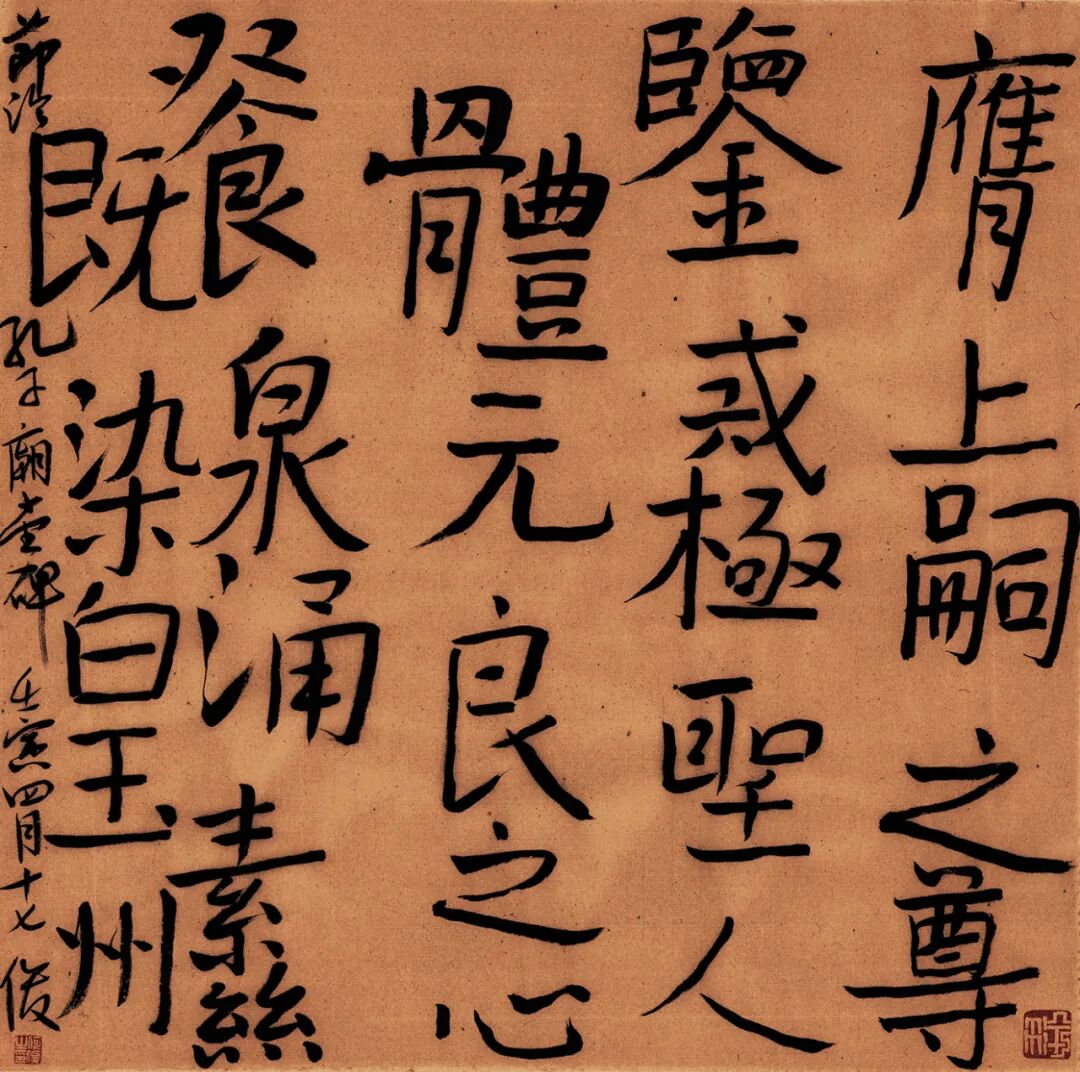 膺上嗣之尊
鑒忒極聖人
體元良之心
餐泉涌素絲
既染白玉州
節临孔子廟堂碑壬寅四月十七俊